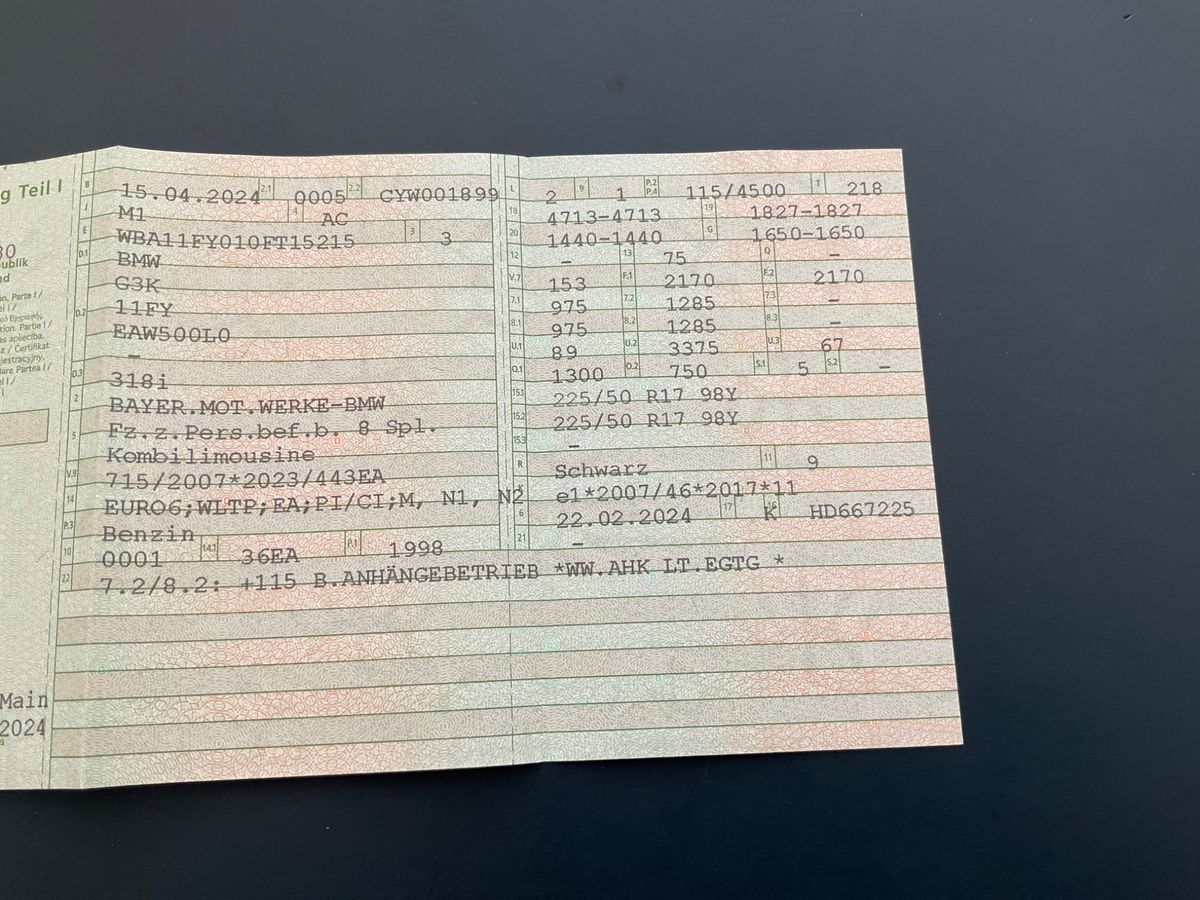 g Teil I
30
ublik
nd
n. Parte I /
el I /
tion. Partie I /
as apliecība.
z / Certifikat
jestracyjny.
lare Partea I /
el I /
Main
2024
B 15.04.2024 2.1 0005 2.2 CYW001899
J M1 4 AC
E WBA11FY010FT15215 3 3
D.1 BMW
G3K
D.2 11FY
EAW500L0
–
D.3 318i
2 BAYER.MOT.WERKE-BMW
5 Fz.z.Pers.bef.b. 8 Spl.
Kombilimousine
V.9 715/2007*2023/443EA
14 EURO6;WLTP;EA;PI/CI;M, N1, N2
P.3 Benzin
10 0001 14.1 36EA P.1 1998
22 7.2/8.2: +115 B.ANHÄNGEBETRIEB *WW.AHK LT.EGTG *
L 2 9 1 P.2 P.4 115/4500 T 218
18 4713-4713 19 1827-1827
20 1440-1440 G 1650-1650
12 – 13 75 Q –
V.7 153 F.1 2170 F.2 2170
7.1 975 7.2 1285 7.3 –
8.1 975 8.2 1285 8.3 –
U.1 89 U.2 3375 U.3 67
O.1 1300 O.2 750 S.1 5 S.2 –
15.1 225/50 R17 98Y
15.2 225/50 R17 98Y
15.3 –
R Schwarz 11 9
K e1*2007/46*2017*11
6 22.02.2024 17 K HD667225
21 –